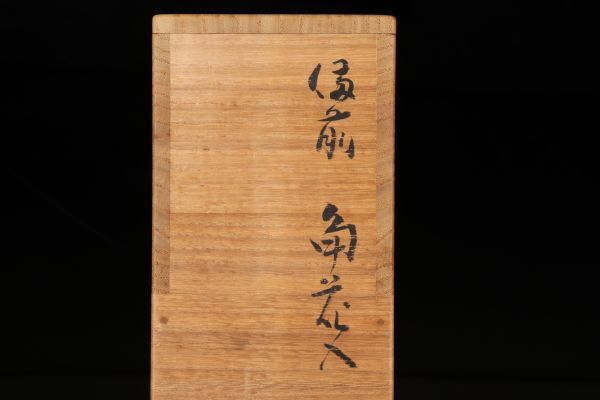 備前 角花入